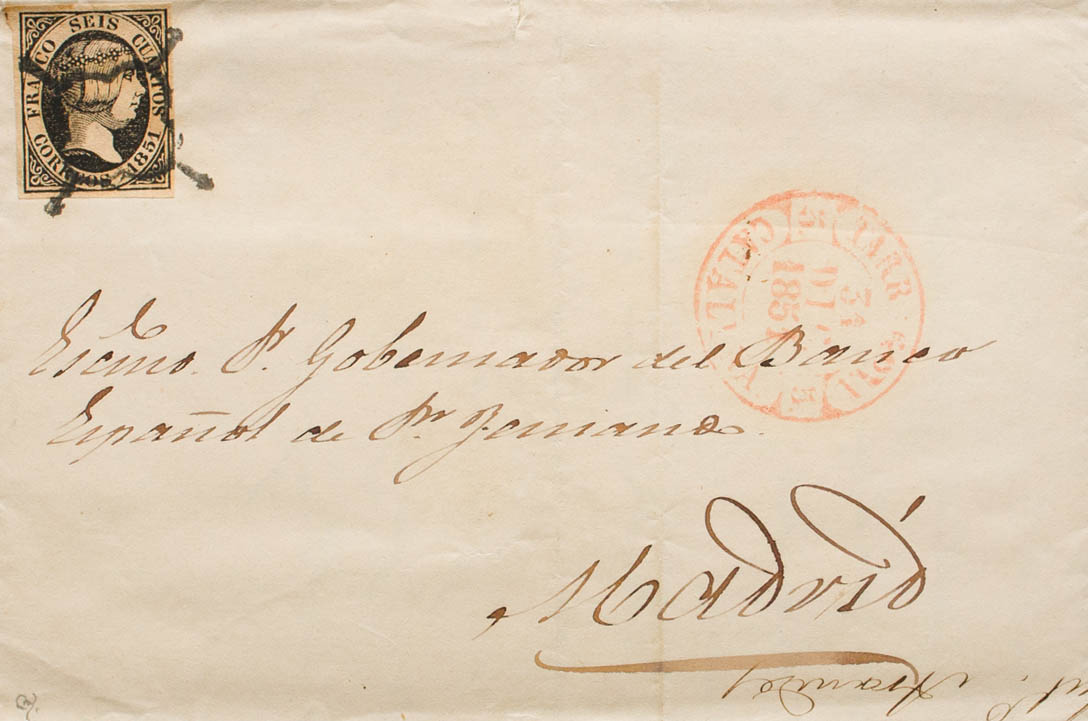 FRANCO SEIS CUARTOS
CORREOS 1851
31
1851
Escmo Sr Gobernador del Banco
Español de Sn Fernando
Madrid